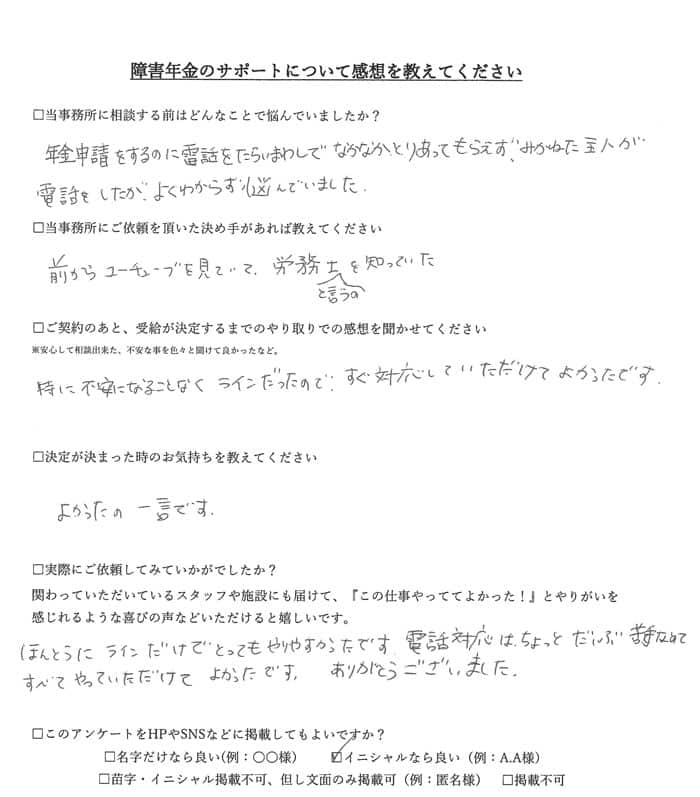 障害年金のサポートについて感想を教えてください
□当事務所に相談する前はどんなことで悩んでいましたか？
年金申請をするのに電話をたらいまわしで なかなかとりあってもらえず、みかねた主人が
電話をしたが、よくわからず悩んでいました.
□当事務所にご依頼を頂いた決め手があれば教えてください
前からユーチューブを見ていて、労務士を知っていた
と言うの
□ご契約のあと、受給が決定するまでのやり取りでの感想を聞かせてください
※安心して相談出来た、不安な事を色々と聞けて良かったなど。
特に不安になることなく ラインだったので、すぐ対応していただけて よかったです.
□決定が決まった時のお気持ちを教えてください
よかったの 一言です.
□実際にご依頼してみていかがでしたか？
関わっていただいているスタッフや施設にも届けて、『この仕事やっててよかった！』とやりがいを
感じれるような喜びの声などいただけると嬉しいです。
ほんとうに ラインだけでとってもやりやすかったです. 電話対応は、ちょっと だいぶ
すべてやっていただけて よかったです. ありがとうございました.
□このアンケートをHPやSNSなどに掲載してもよいですか？
□名字だけなら良い(例：〇〇様) ☑イニシャルなら良い（例：A.A様）
□苗字・イニシャル掲載不可、但し文面のみ掲載可（例：匿名様） □掲載不可